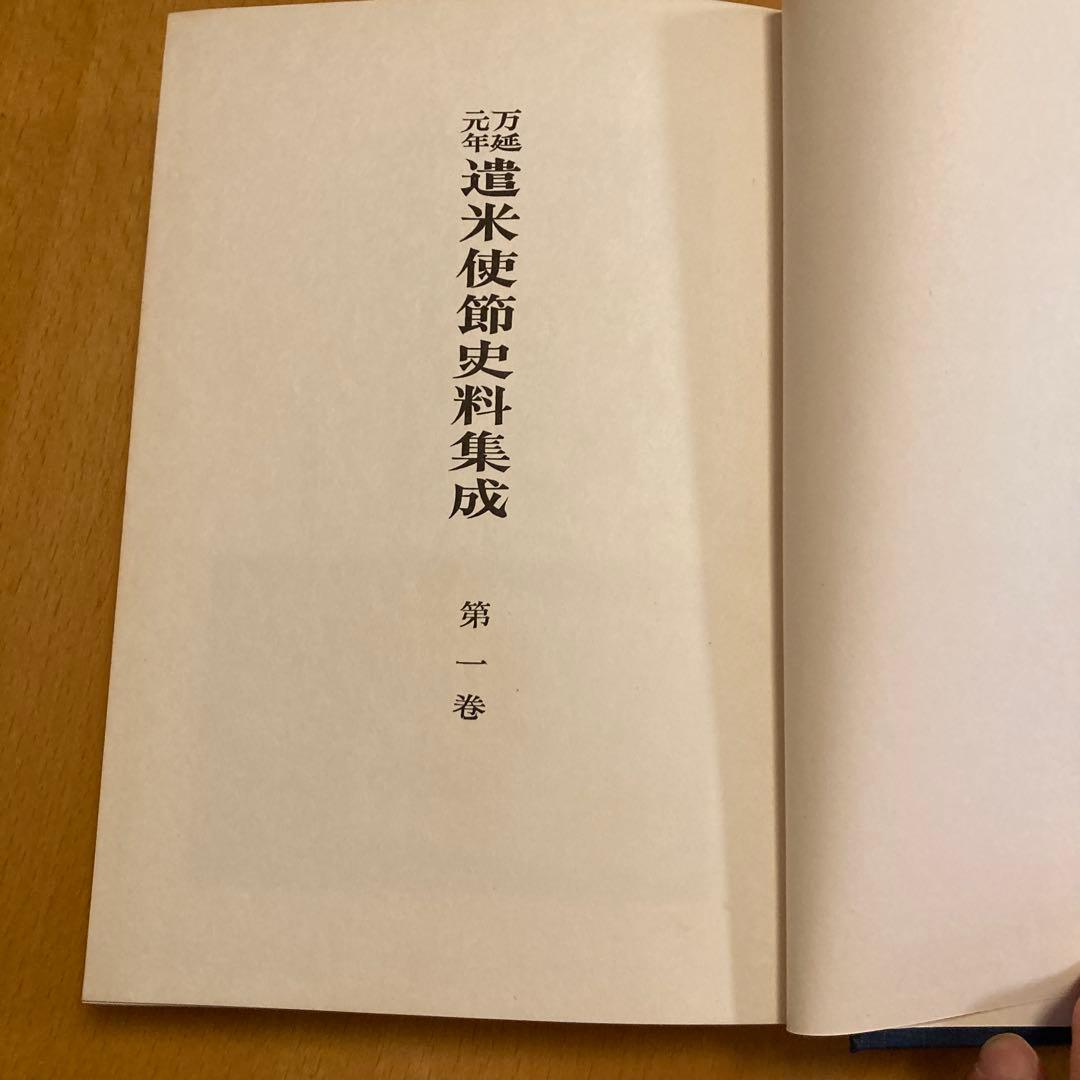 万延元年遣米使節史料集成
第一巻